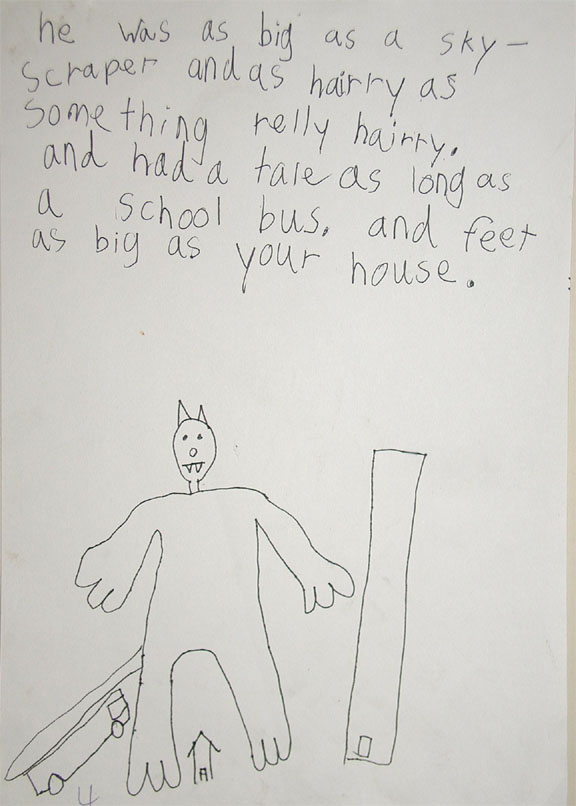 he was as big as a sky-
scraper and as hairry as
something relly hairry.
and had a tale as long as
a school bus. and feet
as big as your house.
4